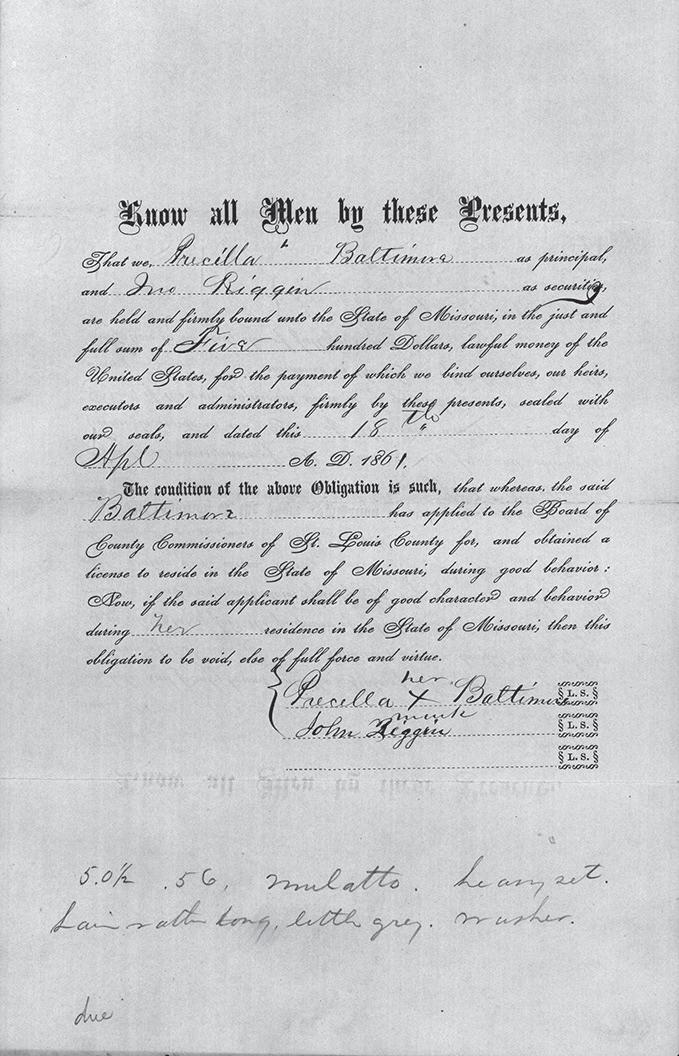 Know all Men by these Presents,
That we, Precilla Baltimore as principal,
and Jno Riggin as security,
are held and firmly bound unto the State of Missouri, in the just and
full sum of Five hundred Dollars, lawful money of the
United States, for the payment of which we bind ourselves, our heirs,
executors and administrators, firmly by these presents, sealed with
our seals, and dated this 18th day of
Apl A. D. 1861.
The condition of the above Obligation is such, that whereas, the said
Baltimore has applied to the Board of
County Commissioners of St. Louis County for, and obtained a
license to reside in the State of Missouri, during good behavior:
Now, if the said applicant shall be of good character and behavior
during her residence in the State of Missouri, then this
obligation to be void, else of full force and virtue.
her
Precella X Baltimore L. S.
mark
John Riggin L. S.
L. S.
5.0½ .56, mulatto. heavy set.
hair rather long, little grey. washer.